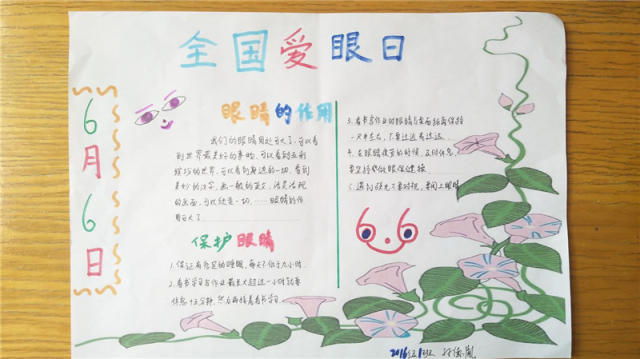 全国爱眼日
6月6日
眼睛的作用
我们的眼睛用处可大了,可以看
到世界最美好的事物,可以看到五彩
缤纷的世界,可以看到身边的一切,看到
美妙的文字,画一般的英文,活灵活现
的画面,可以处处一切,……眼睛的作
用可大了
保护眼睛
1.保证有充足的睡眠,每天不低于九小时.
2.看书学习写作业最长大超过一小时就要
休息十分钟.然后再接着看书学习.
3.看书写作业时眼睛与桌面距离保持
一尺半左右,不要过近或过远.
4.在眼睛疲劳的时候,及时休息,
要坚持做眼保健操.
5.遇到强光不要对视,要闭上眼睛
66